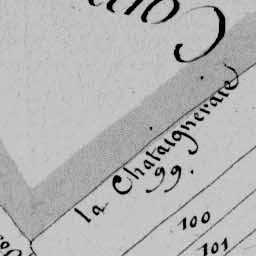 la Chataigneraie
99.
100
101